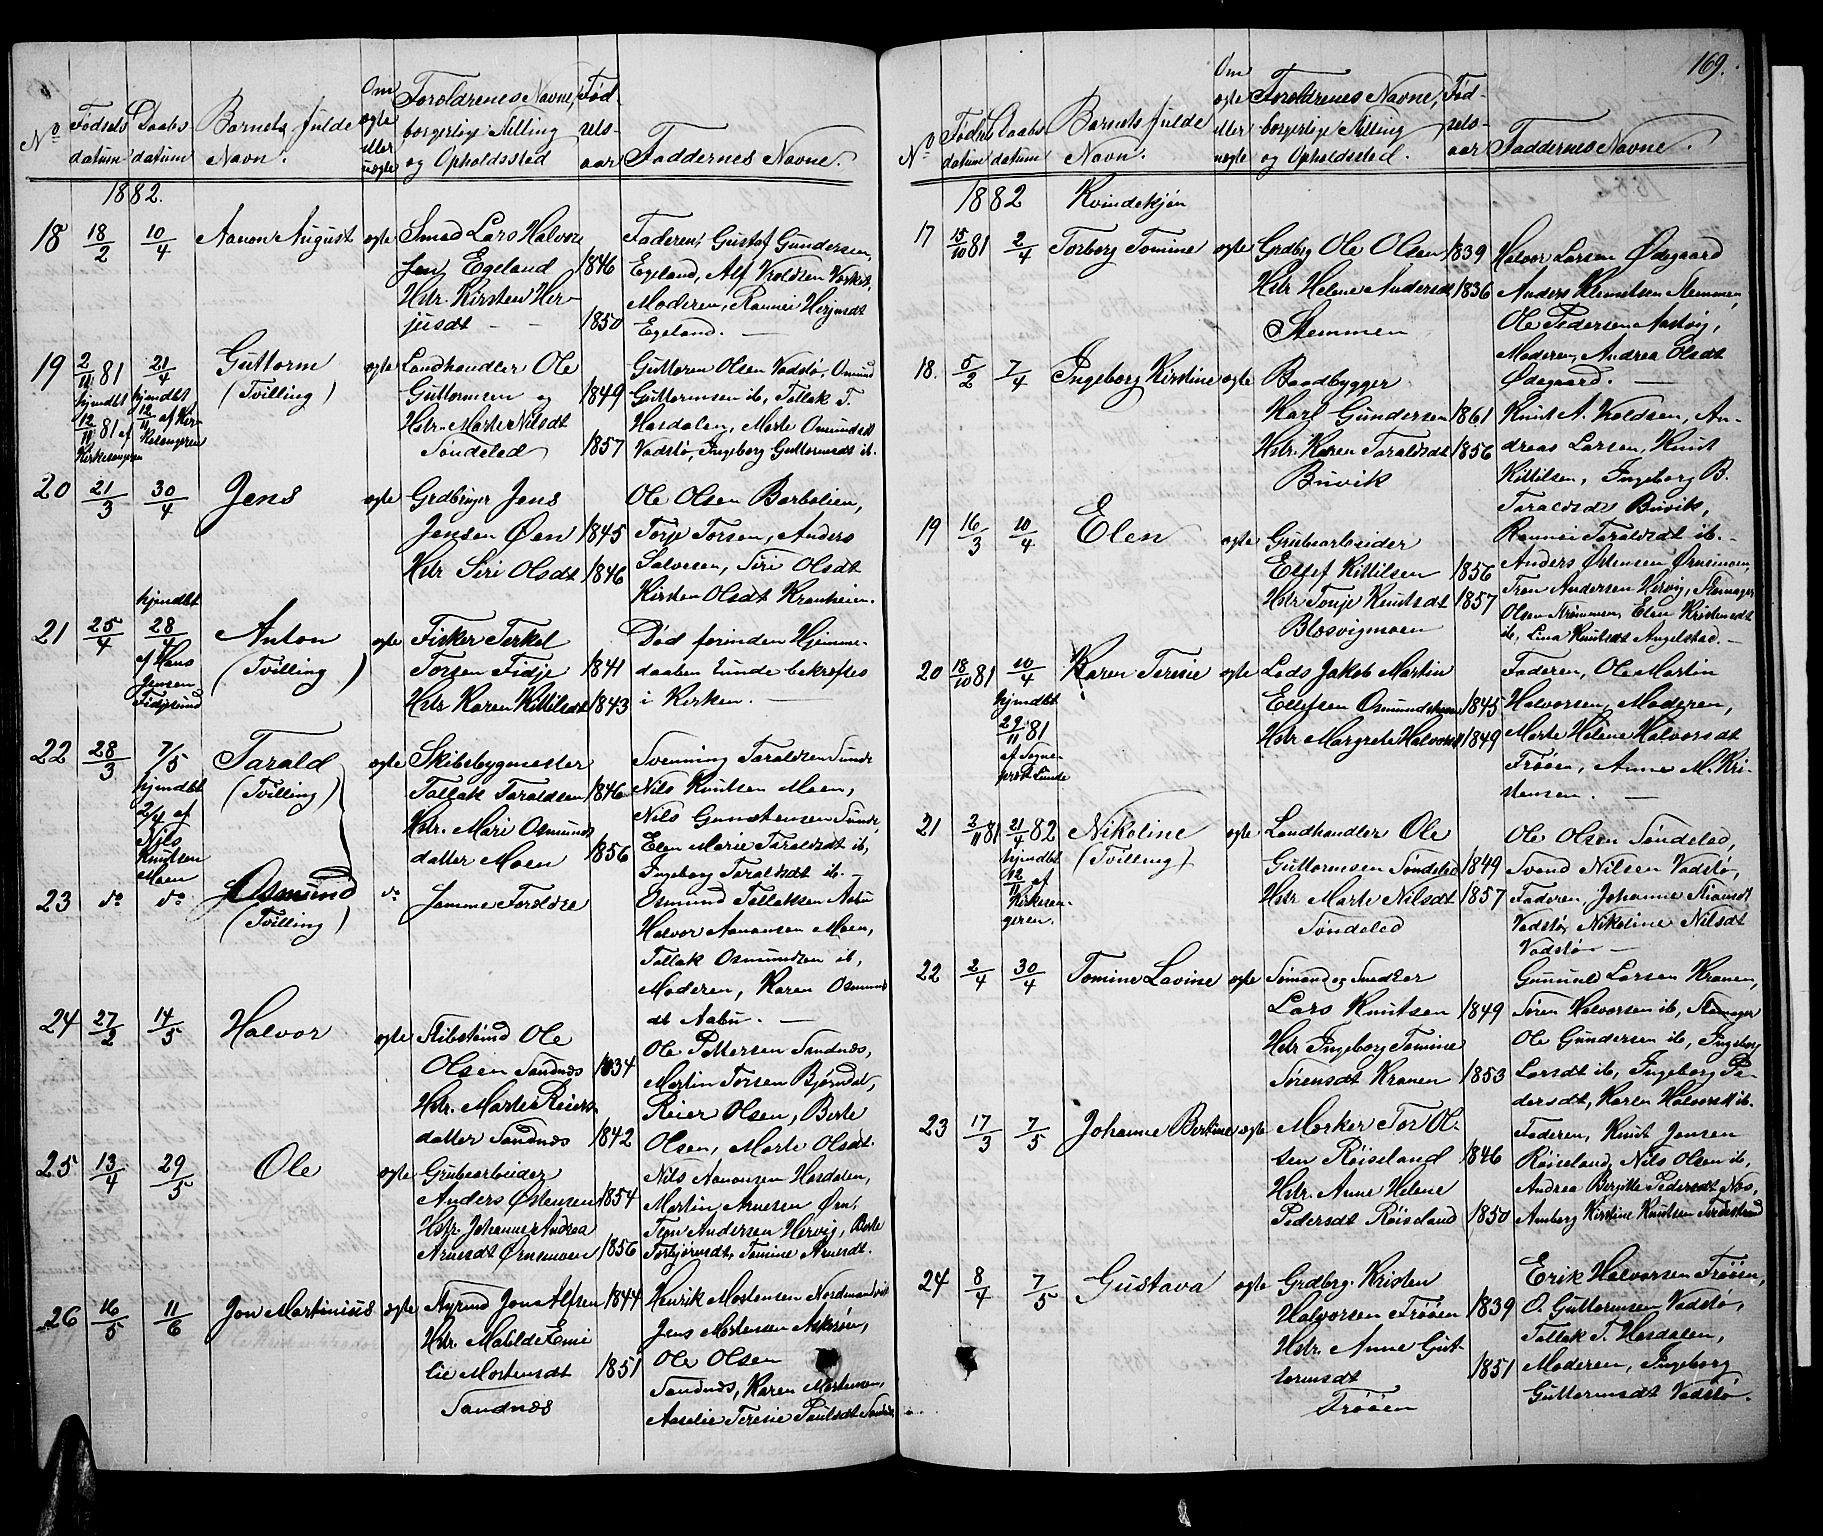 No Fødsels datum Daabs datum Barnets fulde Navn. Om ægte eller uægte Forældrenes Navne, borgerlige Stilling og Opholdssted Fødselsaar Faddernes Navne.
1882.
18 18/2 10/4 Aanon August ægte Smed Lars Halvor- Faderen, Gustaf Gundersen,
sen Egeland 1846 Egeland, Alf Koldsen
Hstr Kirsten Her- Moderen, Rannei Herjusdt
jusdt 1850 Egeland.
19 2/11 81 21/4 Guttorm ægte Landhandler Ole Guttorm Olsen Vadstø, Osmund
hjmdbt hjmdbt (Tvilling) Guttormsen og 1849 Guttormsen ib, Tallak T.
12/11 81 af 12/11 af Kir- Hstr. Marte Nilsdt Hasdalen, Marte Osmundsdt
Kirkesangeren kesangeren Søndeled 1857 Vadstø, Ingeborg Guttormsdt ib.
20 21/3 30/4 Jens ægte Grdbruger Jens Ole Olsen Barbolien,
Jensen Øen 1845 Torje Torsen, Anders
Hstr Siri Olsdt 1846 Salvesen, Siri Olsdt
Kirsten Olsdt Kranheien.
21 25/4 hjmdbt 28/4 Anton ægte Fisker Terkel Død forinden Hjemme-
af Hans (Tvilling) Torsen Fidje 1841 daaben kunde bekræftes
Jensen Fidjesund Hstr Karen Kittilsdt 1843 i Kirken.
22 28/3 7/5 Tarald ægte Skibsbygmester Svenning Taraldsen Sunde
hjmdbt (Tvilling) Tallak Taraldsen 1846 Nils Knutsen Moen,
2/4 af Hstr. Mari Osmunds- Nils Gunstensen Sunde,
Nils datter Moen 1856 Elen Marie Taraldsdt ib,
Knutsen Moen Ingeborg Taraldsdt ib.
23 do do Osmund do Samme Forældre Osmund Tallaksen Aabu
(Tvilling) Halvor Aanonsen Moen,
Tallak Osmundsen ib,
Moderen, Karen Osmunds
dt Aabu.
24 27/2 14/5 Halvor ægte Ole Ole Pettersen Sandnæs,
Olsen Sandnæs 1834 Martin Torsen
Hstr. Marte Reiers- Reier Olsen, Berte
datter Sandnæs 1842 Olsen, Marte Olsdt.
25 13/4 29/5 Ole ægte Grubearbeider Nils Aanonsen Hasdalen,
Anders Østensen 1854 Martin Arnesen Øen,
Hstr. Johanne Andrea Tron Andersen Hervig, Berte
Arnesdt Ørnsmoen 1856 Torbjørnsdt, Tomine Arnesdt.
26 16/5 11/6 Jon Martinius ægte Styrmd Jon Alfsen 1844 Henrik Mortensen
Hstr. Matilde Emi- Jens Mortensen Askerøen,
lie Mortensdt 1851 Ole Olsen
Sandnæs Sandnæs, Karen Mortensen,
Aaselie Terese Paulsdt

169.
No Fødsels datum Daabs datum Barnets fulde Navn. Om ægte eller uægte Forældrenes Navne, borgerlige Stilling og Opholdssted. Fødselsaar Faddernes Navne.
1882 Kvindekjøn
17 15/10 81 2/4 Torborg Tomine ægte Grdbrg Ole Olsen 1839 Halvor Larsen Ødegaard
Hstr Helene Andersdt 1836 Anders Klemetsen Stemmen,
Stemmen Ole Pedersen Aasvig,
Moderen, Andrea Olsdt
Ødegaard.
18. 5/2 7/4 Ingeborg Kirstine ægte Baadbygger
Karl Gundersen 1861 Knut A. Koldsen, An-
Hstr. Karen Taraldsdt 1856 dreas Larsen, Knut
Buvik Kittilsen, Ingeborg B.
Taraldsdt Buvik,
Rannei Taraldsdt ib.
19 16/3 10/4 Elen ægte Grubearbeider Anders Østensen Ørnsmoen,
Ellef Kittilsen 1856 Tron Andersen Hervig,
Hstr Tonje Knutsdt 1857 Olsen Strømmen, Elen Kristensdt
Blosvigmoen ib, Lina Knutsdt Angelstad.
20 18/10 81 10/4 Karen Teresie ægte Lods Jakob Martin Faderen, Ole Martin
hjmdbt Ellefsen 1845 Halvorsen, Moderen,
29/11 81 Hstr Margrete Halvorsdt 1849 Marte Helene Halvorsdt
af Sogne- Frøen, Anne M. Kri-
prst Lunde stensen.
21 2/11 81 21/4 82 Nikoline ægte Landhandler Ole Ole Olsen Søndeled,
hjmdbt (Tvilling) Guttormsen Søndeled 1849 Svend Nilsen Vadstø,
12/11 af Hstr Marte Nilsdt 1857 Faderen, Johanne
Kirkesan- Søndeled Vadstø, Nikoline Nilsdt
geren. Vadstø
22 2/4 30/4 Tomine Lavine ægte Sømand og Snedker Gunuld Larsen Kranen,
Lars Knutsen 1849 Søren Halvorsen ib,
Hstr Ingeborg Tomine Ole Gundersen ib, Ingeborg
Sørensdt Kranen 1853 Larsdt ib, Ingeborg Pe-
dersdt, Karen Halvorsdt ib.
23 17/3 7/5 Johanne Bertine ægte Marker Tor Ol- Faderen, Knut Jensen
sen Røiseland 1846 Røiseland, Nils Olsen ib,
Hstr. Anne Helene Andrea Bergitte Pedersdt Næs,
Pedersdt Røiseland 1850 Amborg Kirstine Knutsen
24 8/4 7/5 Gustava ægte Grdbrg. Kristen Erik Halvorsen Frøen,
Halvorsen Frøen 1839 O. Guttormsen Vadstø,
Hstr. Anne Gut- Tallak T. Hasdalen,
tormsdt 1851 Moderen, Ingeborg
Frøen Guttormsdt Vadstø.